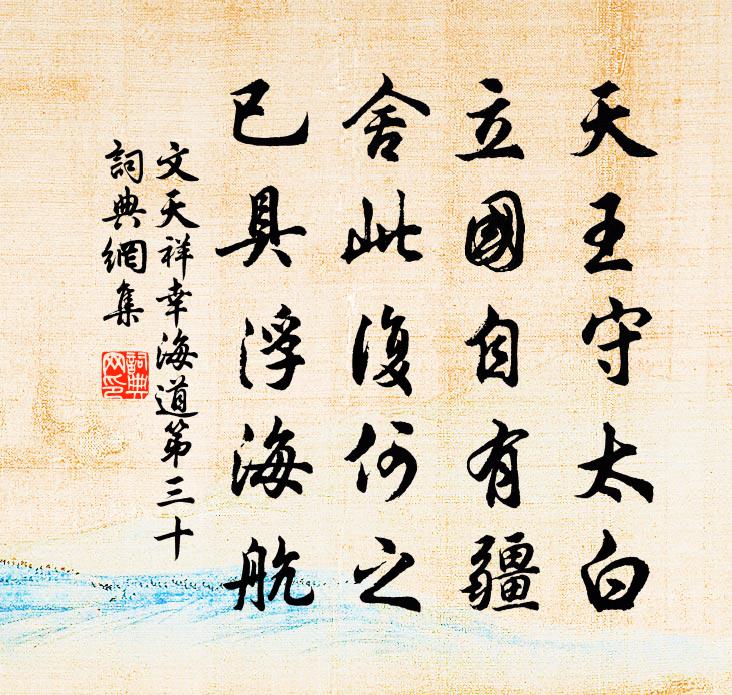 天王守太白
立國自有疆
舍此復何之
已具浮海航
文天祥幸海道第三十
詞典網集
詞典網印